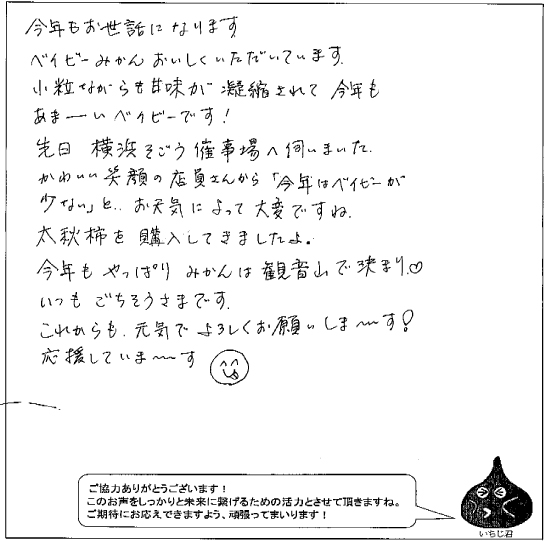 今年もお世話になります
ベイビーみかんおいしくいただいています.
小粒ながらも甘味が凝縮されて今年も
あまーいベイビーです!
先日 横浜そごう催事場へ伺いました.
かわいい笑顔の店員さんから「今年はベイビーが
少ない」と.. お天気によって大変ですね.
太秋柿を購入してきましたよ。
今年もやっぱりみかんは観音山で決まり♡
いつもごちそうさまです.
これからも.元気でよろしくお願いしま〜〜す!
応援していま〜〜す
ご協力ありがとうございます!
このお声をしっかりと未来に繋げるための活力とさせて頂きますね。
ご期待にお応えできますよう、頑張ってまいります!
いちじ君